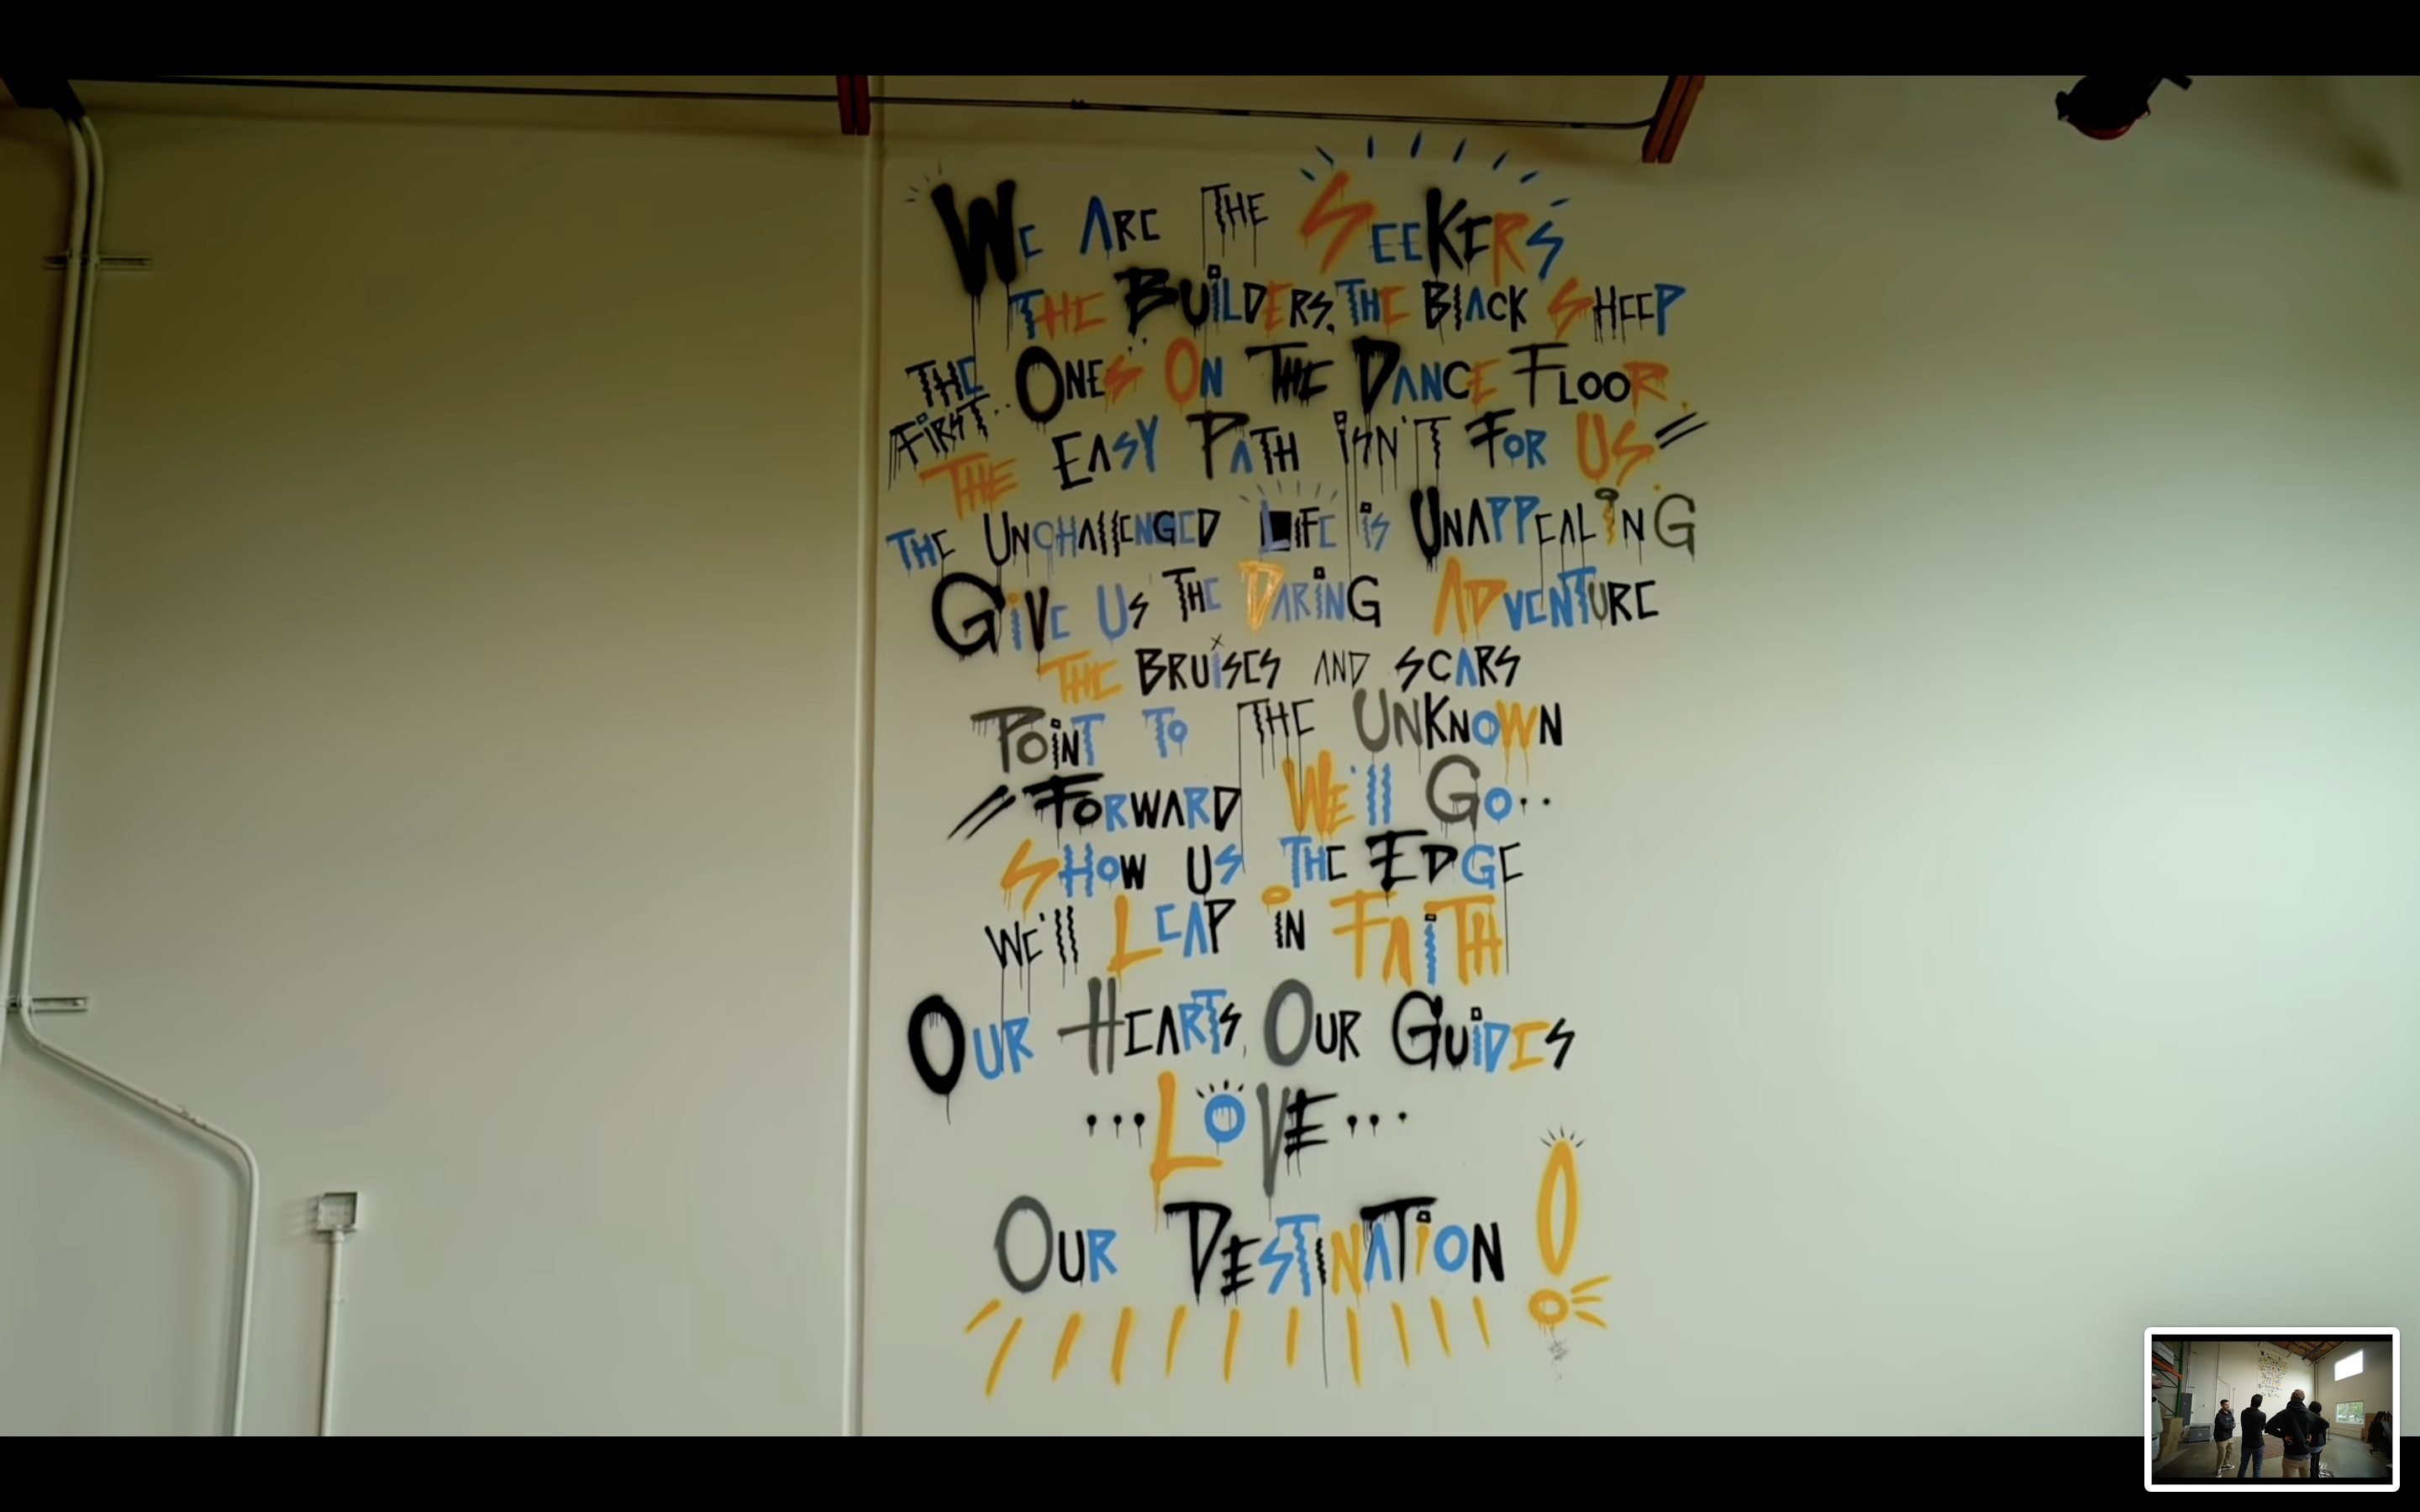 We Are The Seekers
The Builders, The Black Sheep
The First.. Ones On The Dance Floor
The Easy Path isn't For Us
The Unchallenged Life is Unappealing
Give Us The Daring Adventure
The Bruises and scars
Point To The Unknown
Forward We'll Go..
Show Us The Edge
We'll Leap in Faith
Our Hearts, Our Guides
...Love...
Our Destination!